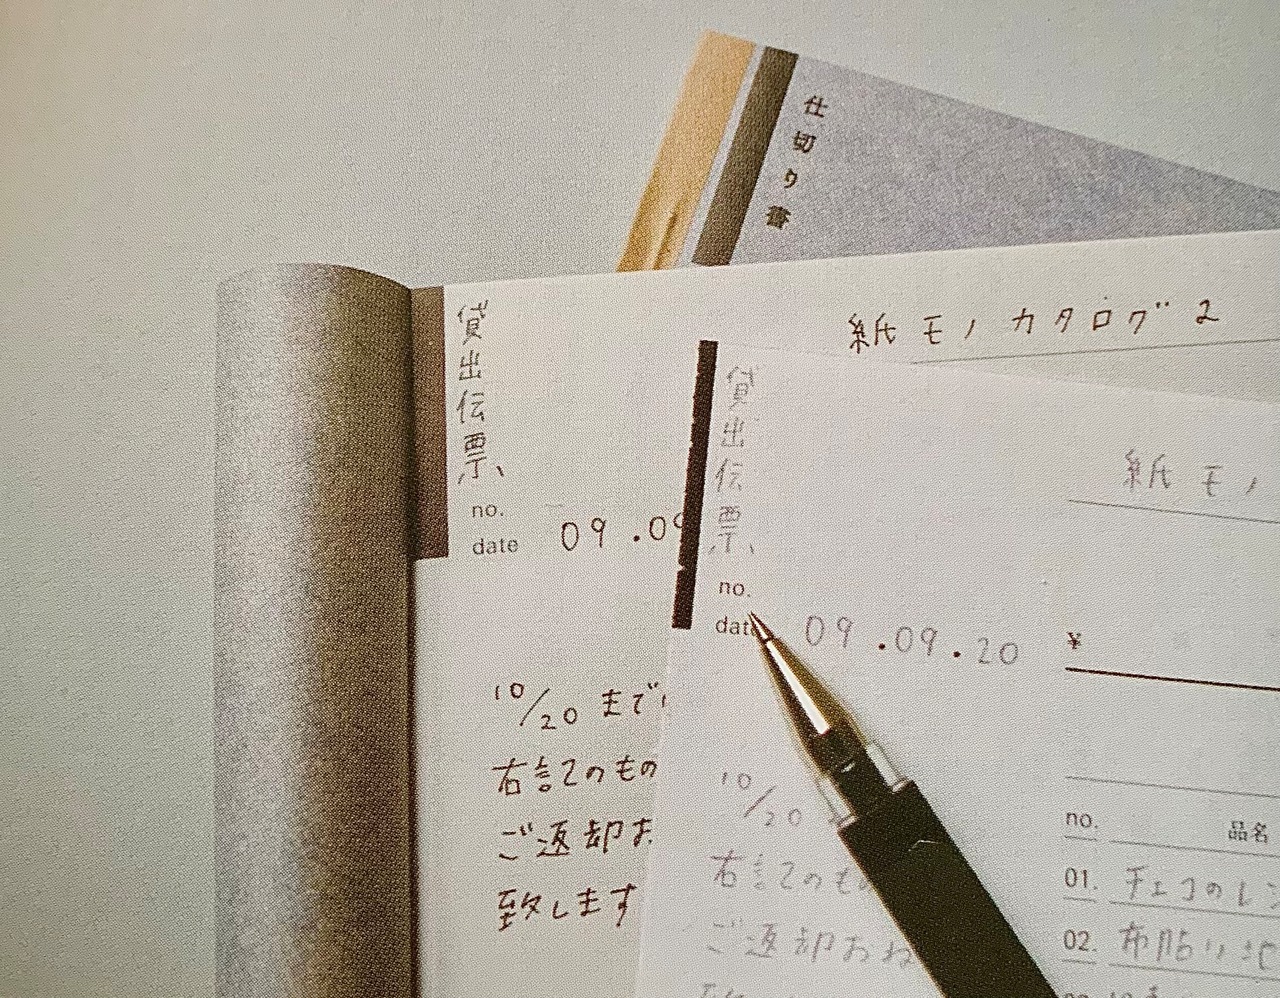 仕切り書
貸出伝票
紙モノカタログ2
no.
date 09.09
10/20 まで
右記のもの
ご返却お
致します
貸出伝票
紙モノ
no.
date 09.09.20
¥
10/20
右記のもの
ご返却おね
no. 品名
01. チェコのレ
02. 布貼り